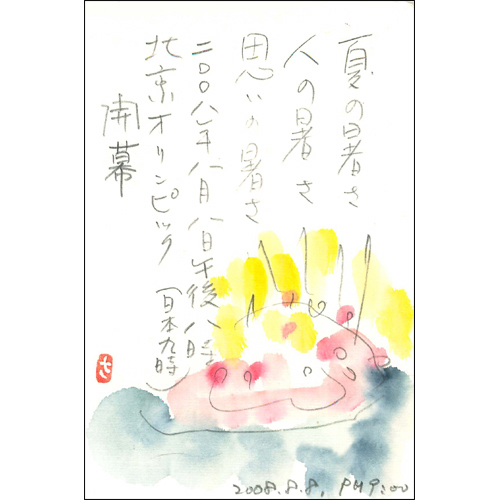 夏の暑さ
人の暑さ
思いの暑さ
二〇〇八年八月八日午後八時
北京オリンピック(日本九時)
開幕
さ
2008.8.8. PM9:00